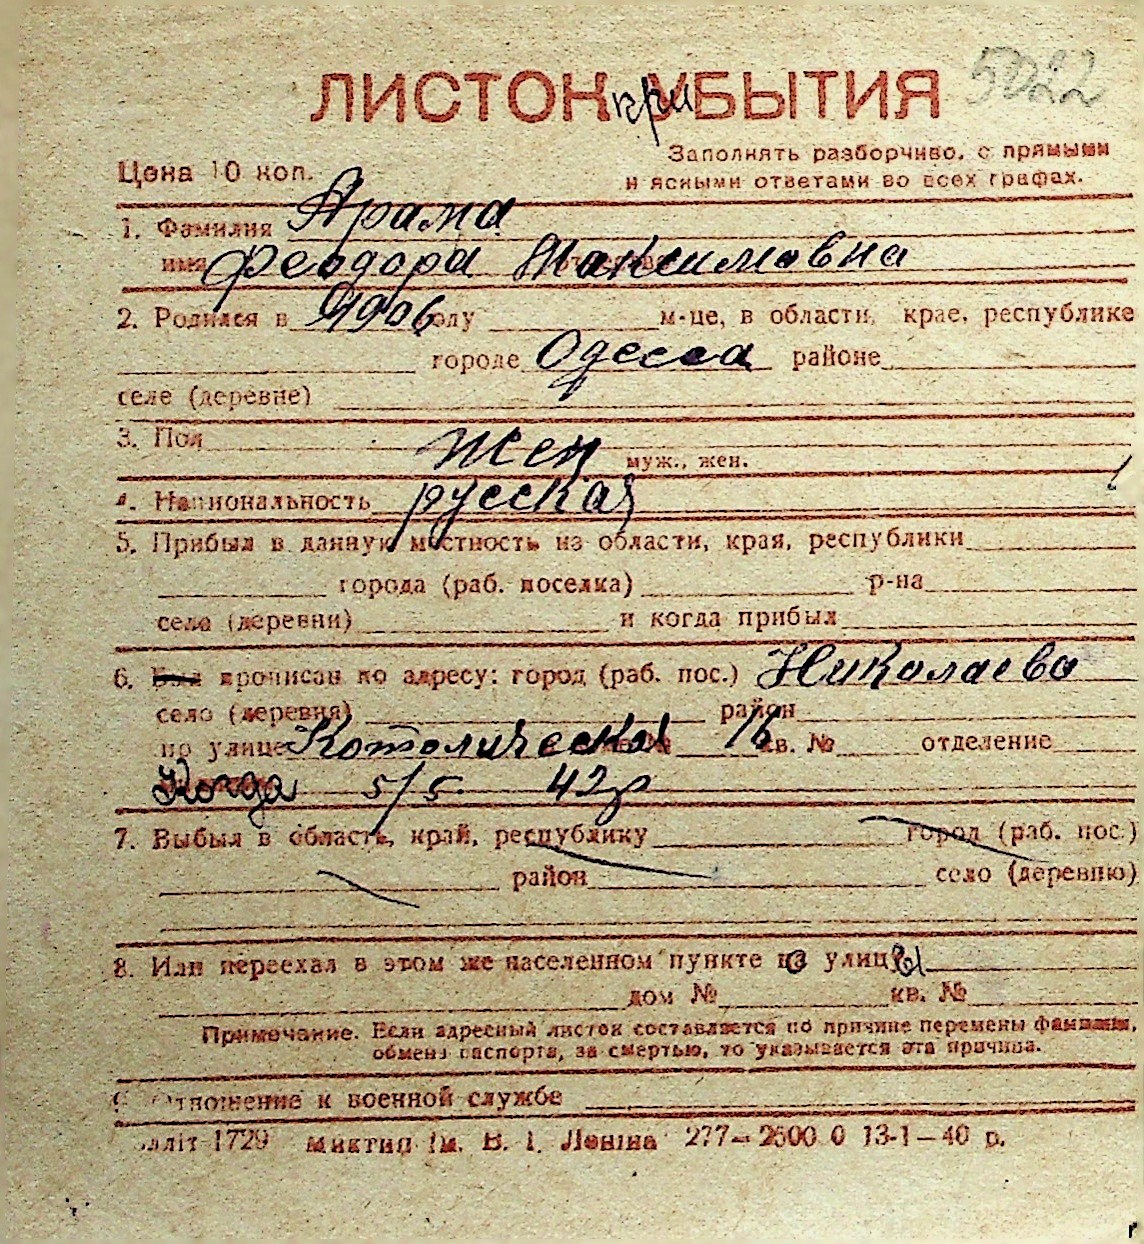 5022
ЛИСТОК при УБЫТИЯ
Цена 10 коп.
Заполнять разборчиво, с прямыми
и ясными ответами во всех графах.
1. Фамилия Арама
имя Феодора Максимовна
2. Родился в 1906 году м-це, в области, крае, республике
городе Одесса районе
селе (деревне)
3. Пол Жен муж., жен.
4. Национальность русская
5. Прибыл в данную местность из области, края, республики
города (раб. поселка) р-на
села (деревни) и когда прибыл
6. Был прописан по адресу: город (раб. пос.) Николаево
село (деревня) район
по улице Котолическая 16 кв. № отделение
Когда 5/5 42г
7. Выбыл в область, край, республику город (раб. пос.)
район село (деревню)
8. Или переехал в этом же населенном пункте с улицы
дом № кв. №
Примечание. Если адресный листок составляется по причине перемены фамилии,
обмена паспорта, за смертью, то указывается эта причина.
9. Отношение к военной службе
1729 Миктип ім. В. І. Леніна 277—2500 0 13-1—40 р.